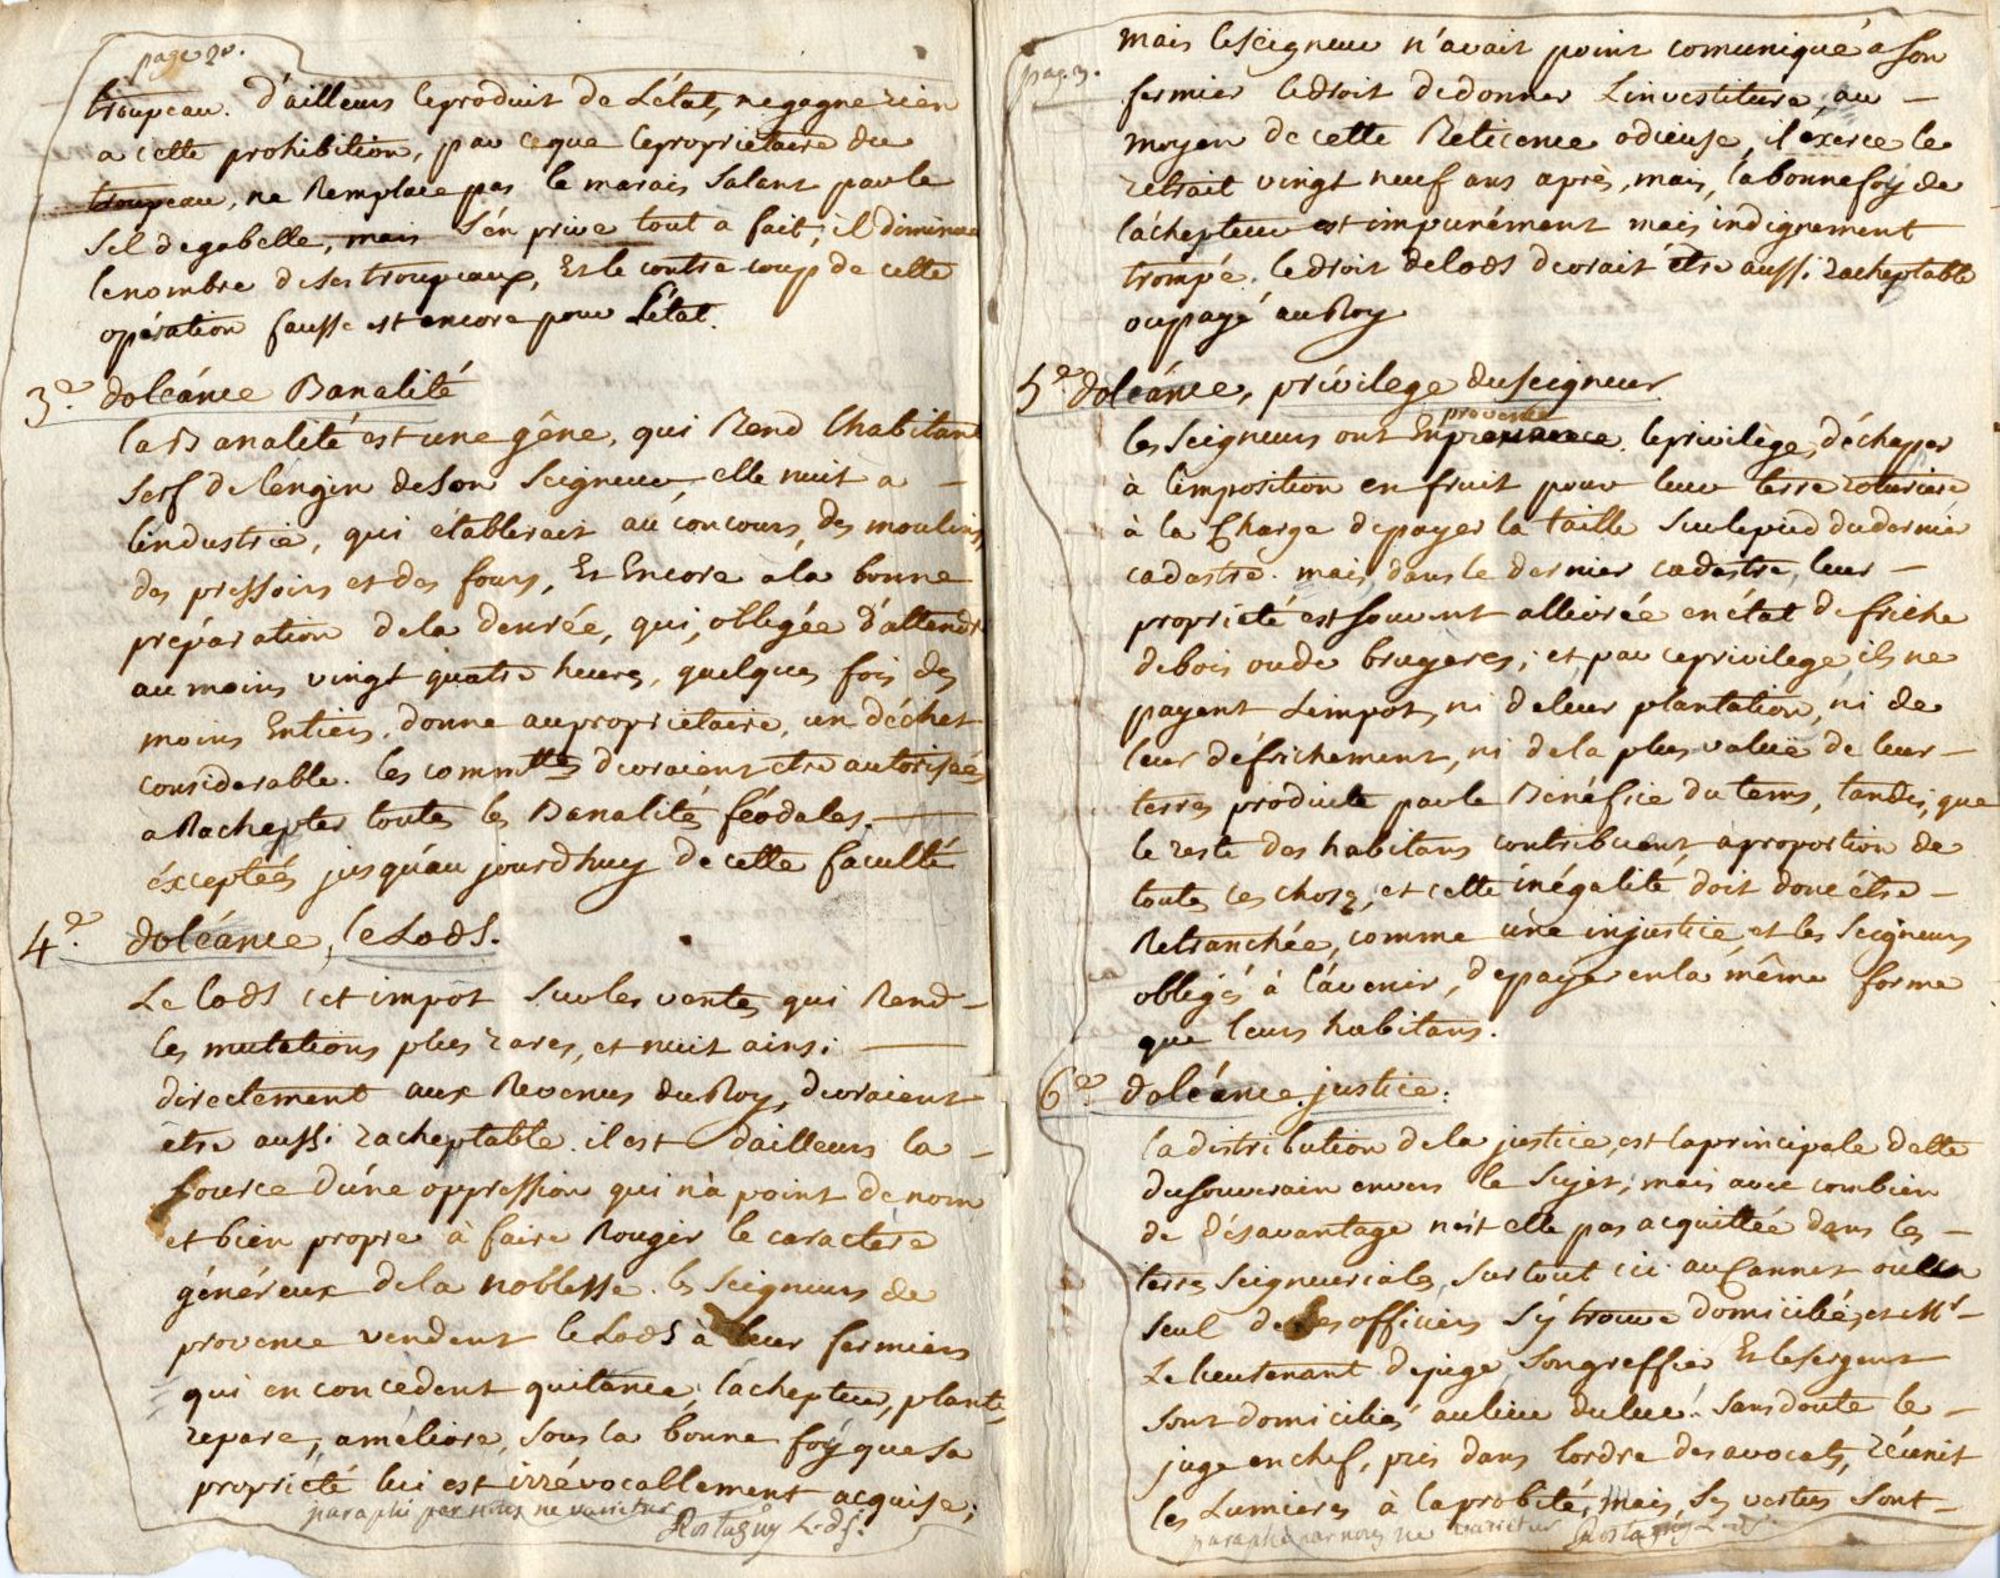 page 2e.
troupeau. d'ailleurs le produit de L'état, ne gagne rien
a cette prohibition, par ceque le propriétaire du
troupeau, ne Remplace pas le marais Salant par le
Sel de gabelle, mais S'en prive tout a fait; il diminue
le nombre de ses troupeaux, Et le contre-coup de cette
opération fausse est encore pour L'état.
3e. doléance Banalité
la Banalité est une gêne, qui Rend l'habitant
serf de l'engin de son Seigneur, elle nuit a -
l'industrie, qui établirait au concours, des moulins,
des pressoirs et des fours, Et Encore a la bonne
préparation de la denrée, qui, obligée d'attendre
au moins vingt quatre heures, quelques fois des
moins Entiers, donne au propriétaire, un déchet
considerable. les commttés devraient etre autorisées
a Rachepter toutes les Banalités féodales. -
éxceptées jusqu'au jourdhuy de cette faculté
4e. doléance, le Lods.
Le lods cet impôt Sur les ventes qui Rend -
les mutations plus rares, et nuit ainsi -
directement aux Revenus du Roy, devraient
etre aussi racheptable. il est dailleurs la -
source d'une oppression qui n'a point de nom
et bien propre à faire Rougir le caractere
généreux de la noblesse. les Seigneurs de
provence vendent le Lods à leur fermiers
qui en concedent quitance, l'achepteur, plante,
repare, améliore, sous la bonne foy que sa
propriété lui est irrévocablement acquise;
paraphé par nous ne varietur Rostagny L. d. j.
pag. 3.
mais le seigneur n'avait point comuniqué a son
fermier le droit de donner L'investiture, au -
moyen de cette Reticence odieuse, il éxerce le
retrait vingt neuf ans après, mais, la bonne foy de
l'achepteur est impunément mais indignement
trompé. le droit de lods devrait être aussi racheptable
ou payé au Roy
5e. doléance, privilege du seigneur
provence
les Seigneurs ont En le privilège, d'échapper
à l'imposition en fruit pour leur terre roturiere
à la Charge de payer la taille Sur le pied du dernier
cadastre. mais, dans le dernier cadastre, leur -
propriété est souvent allivrée en état de friche
de bois ou de bruyeres; et par ce privilege, ils ne
payent L'impot, ni de leur plantation, ni de
leur défrichement, ni de la plus value de leur -
terres produite par le Bénéfice du tems, tandis, que
le reste des habitans contribuent, a proportion de
toutes ces choses, et cette inégalité doit donc être -
Retranchée, comme une injustice, et les Seigneurs
obligés à l'avenir, de payer en la même forme
que leurs habitans.
6e. doléance. justice:
la distribution de la justice, est la principale dette
du souverain envers le Sujet; mais avec combien
de désavantage n'est elle pas acquittée dans les -
terres Seigneuriales, surtout ici au Cannet où un
seul de ses officiers s'y trouve domicilié, et Mr -
Le lieutenant de juge, Son greffier Et le sergent
sont domiciliés au lieu du luc. Sans doute le -
juge en chef, pris dans l'ordre des avocats, réunit
les Lumieres à la probité; mais, Ses vertus sont -
paraphé par nous ne varietur Rostagny L. d. j.